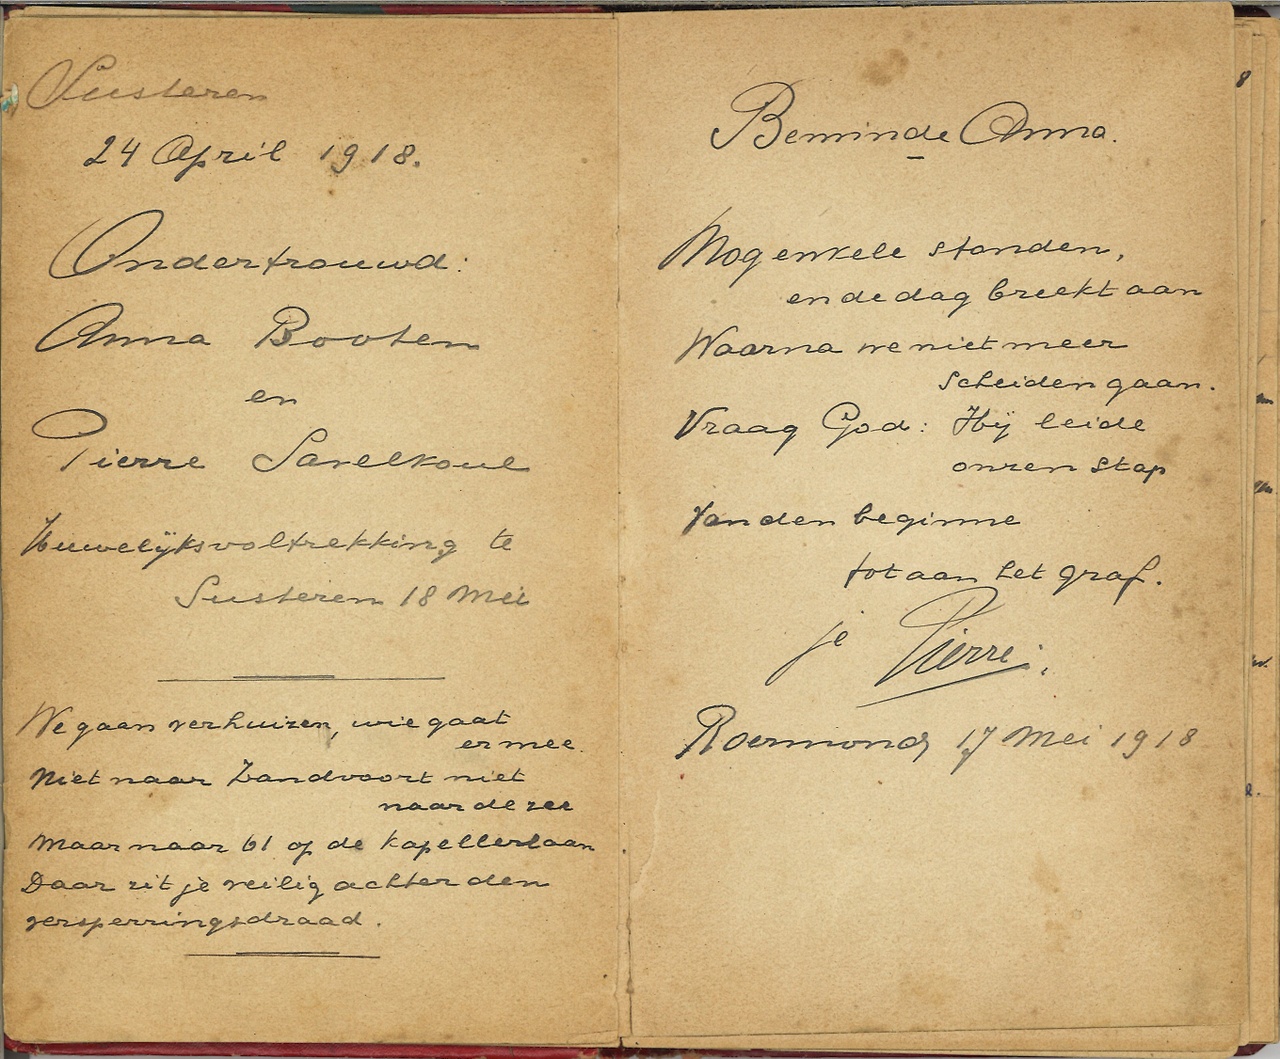 Susteren
24 April 1918.
Ondertrouwd:
Anna Booten
en
Pierre Savelkoul
Huwelijksvoltrekking te
Susteren 18 Mei
We gaan verhuizen, wie gaat
er mee.
Niet naar Zandvoort niet
naar de zee
Maar naar 61 op de Kapellerlaan
Daar zit je veilig achter den
versperringsdraad.
Beminde Anna.
Nog enkele stonden,
en de dag breekt aan
Waarna we niet meer
scheiden gaan.
Vraag God: Hij leide
onzen stap
Van den beginne
tot aan het graf.
je Pierre.
Roermond 17 Mei 1918